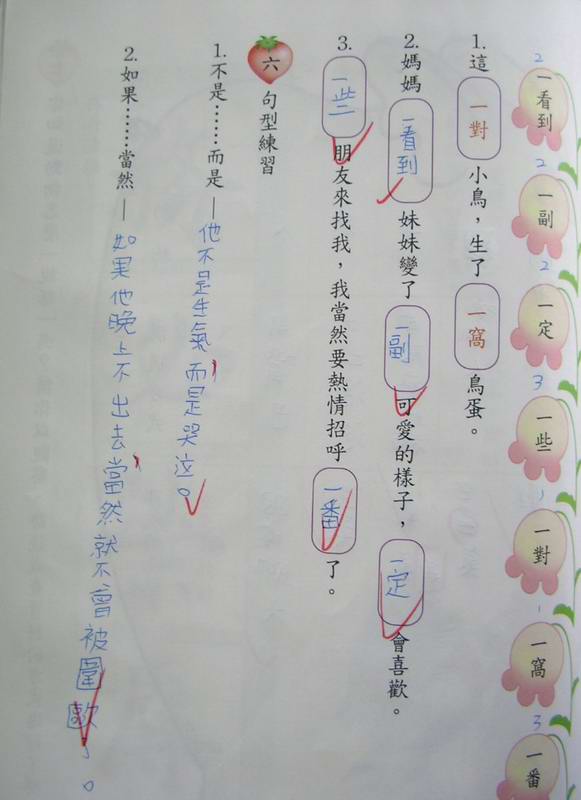 2 一看到
2 一副
2 一定
3 一些
1 一對
1 一窩
3 一番
1. 這一對小鳥，生了一窩鳥蛋。
2. 媽媽一看到妹妹變了一副可愛的樣子，一定會喜歡。
3. 一些朋友來找我，我當然要熱情招呼一番了。
六 句型練習
1. 不是……而是—他不是生氣，而是哭泣。
2. 如果……當然—如果他晚上不出去，當然就不會被圍毆了。